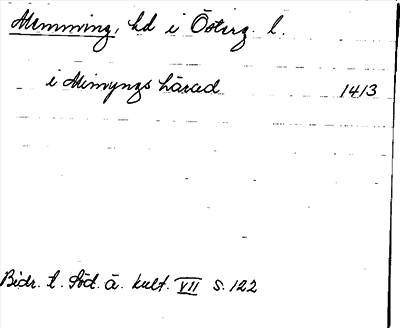 Memming, hd i Österg. l.
i Mimyngs härad 1413
Bidr. t. Söd. ä. kult. VII s. 122